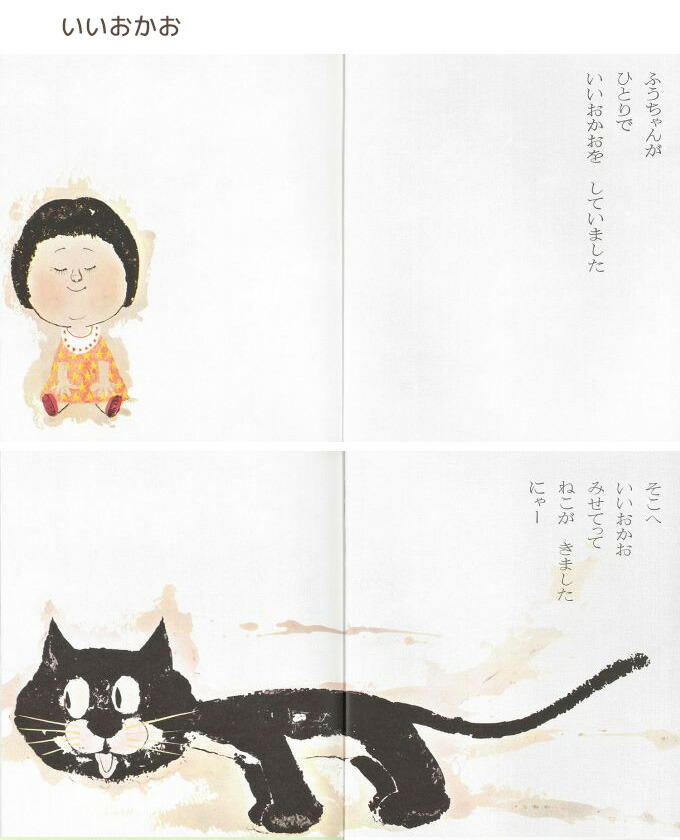 いいおかお
ふうちゃんが
ひとりで
いいおかおを　していました
そこへ
いいおかお
みせてって
ねこが　きました
にゃー